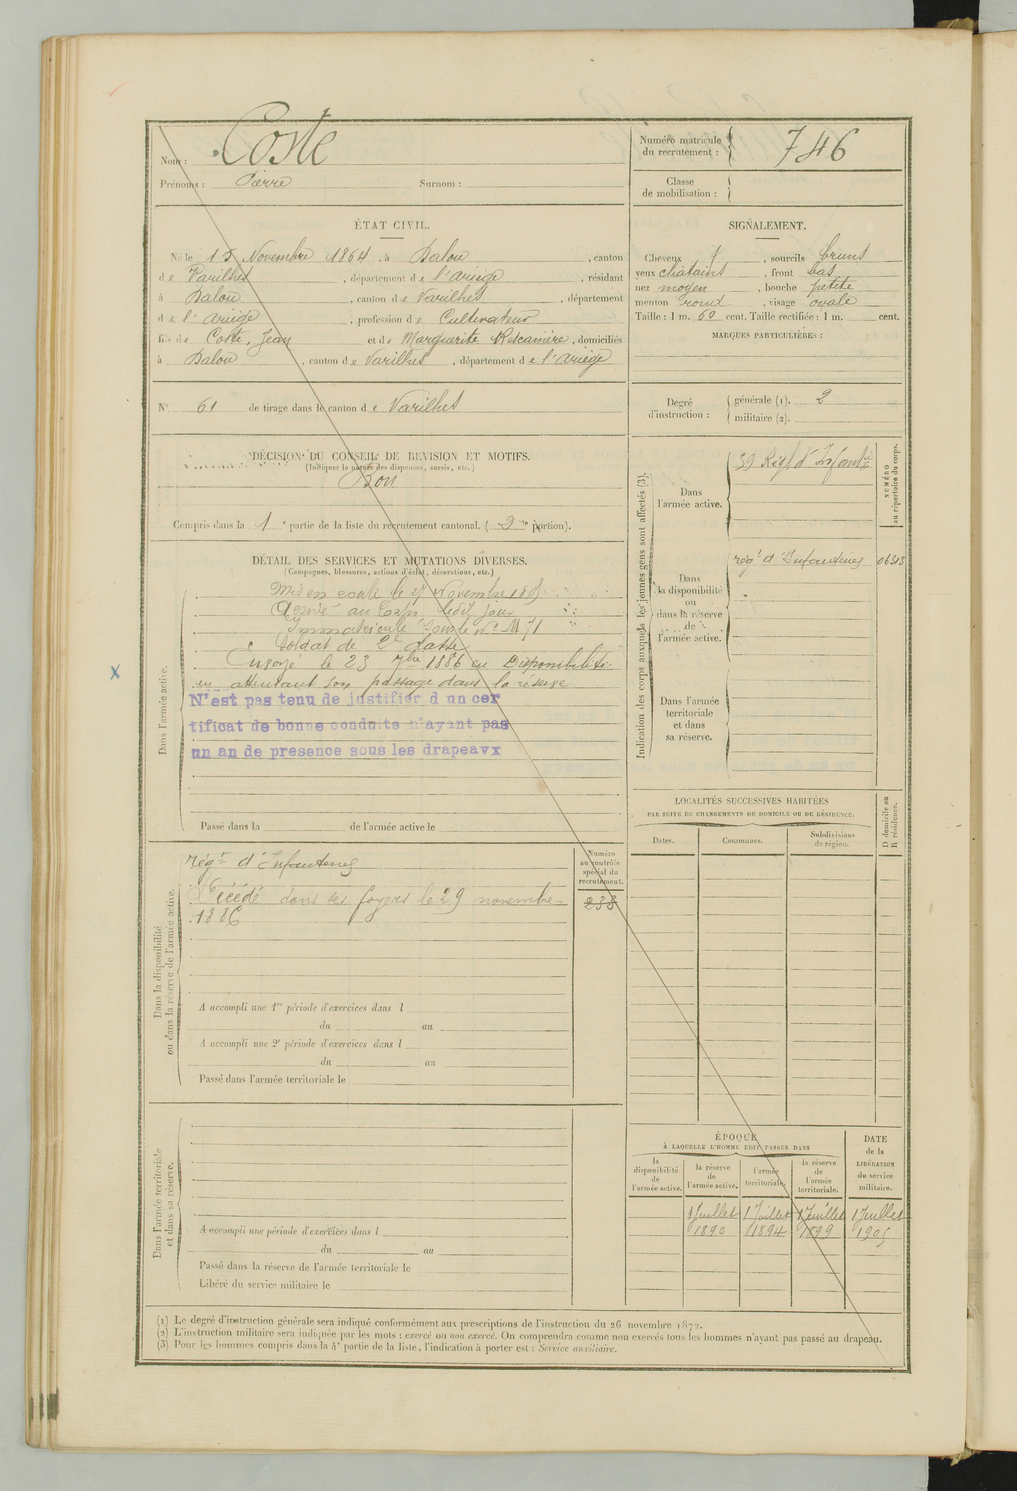 Nom : Coste
Prénoms : Pierre Surnom :
Numéro matricule du recrutement : 746
Classe de mobilisation :
ÉTAT CIVIL.
Né le 15 Novembre 1864, à Dalou, canton
de Varilhes, département de l'Ariège, résidant
à Dalou, canton de Varilhes, département
de l'Ariège, profession de Cultivateur
fils de Coste, Jean et de Marguerite, domiciliés
à Dalou, canton de Varilhes, département de l'Ariège
N° 61 de tirage dans le canton de Varilhes
SIGNALEMENT.
Cheveux, sourcils bruns
yeux chatains, front bas
nez moyen, bouche petite
menton rond, visage ovale
Taille : 1 m. 60 cent. Taille rectifiée : 1 m. cent.
MARQUES PARTICULIÈRES :
Degré d'instruction : générale (1). 2
militaire (2).
DÉCISION DU CONSEIL DE REVISION ET MOTIFS.
(Indiquer la nature des dispenses, sursis, etc.)
Bon
Compris dans la 1e partie de la liste du recrutement cantonal. (2me portion).
DÉTAIL DES SERVICES ET MUTATIONS DIVERSES.
(Campagnes, blessures, actions d'éclat, décorations, etc.)
Dans l'armée active.
Mis en route le Novembre 1885
Arrivé au Corps ledit jour
Immatriculé sous le n°
Soldat de 2e classe
Envoyé le 23 7bre 1886 en Disponibilité
en attendant son passage dans la réserve
N'est pas tenu de justifier d un cer
tificat de bonne conduite n'ayant pas
un an de presence sous les drapeavx
Passé dans la de l'armée active le
Indication des corps auxquels les jeunes gens sont affectés (3).
Dans l'armée active.
39 Régt d'Infantie
NUMÉRO au répertoire du corps.
Dans la disponibilité ou dans la réserve de l'armée active.
régt d'Infanterie 06313
Dans l'armée territoriale et dans sa réserve.
LOCALITÉS SUCCESSIVES HABITÉES
PAR SUITE DE CHANGEMENTS DE DOMICILE OU DE RÉSIDENCE.
Dates. Communes. Subdivisions de région. D domicile ou R résidence.
Dans la disponibilité ou dans la réserve de l'armée active.
régt d'Infanterie
Décédé dans ses foyers le 29 novembre
1886
Numéro au contrôle spécial du recrutement.
238
A accompli une 1re période d'exercices dans l
du au
A accompli une 2e période d'exercices dans l
du au
Passé dans l'armée territoriale le
Dans l'armée territoriale et dans sa réserve.
A accompli une période d'exercices dans l
du au
Passé dans la réserve de l'armée territoriale le
Libéré du service militaire le
ÉPOQUE
À LAQUELLE L'HOMME DOIT PASSER DANS
la disponibilité de l'armée active. la réserve de l'armée active. l'armée territoriale. la réserve de l'armée territoriale. DATE de la LIBÉRATION du service militaire.
1 Juillet 1 Juillet 1 Juillet 1 Juillet
1890 1894 1899 1905
(1) Le degré d'instruction générale sera indiqué conformément aux prescriptions de l'instruction du 26 novembre 1872.
(2) L'instruction militaire sera indiquée par les mots : exercé ou non exercé. On comprendra comme non exercés tous les hommes n'ayant pas passé au drapeau.
(3) Pour les hommes compris dans la 4e partie de la liste, l'indication à porter est : Service auxiliaire.